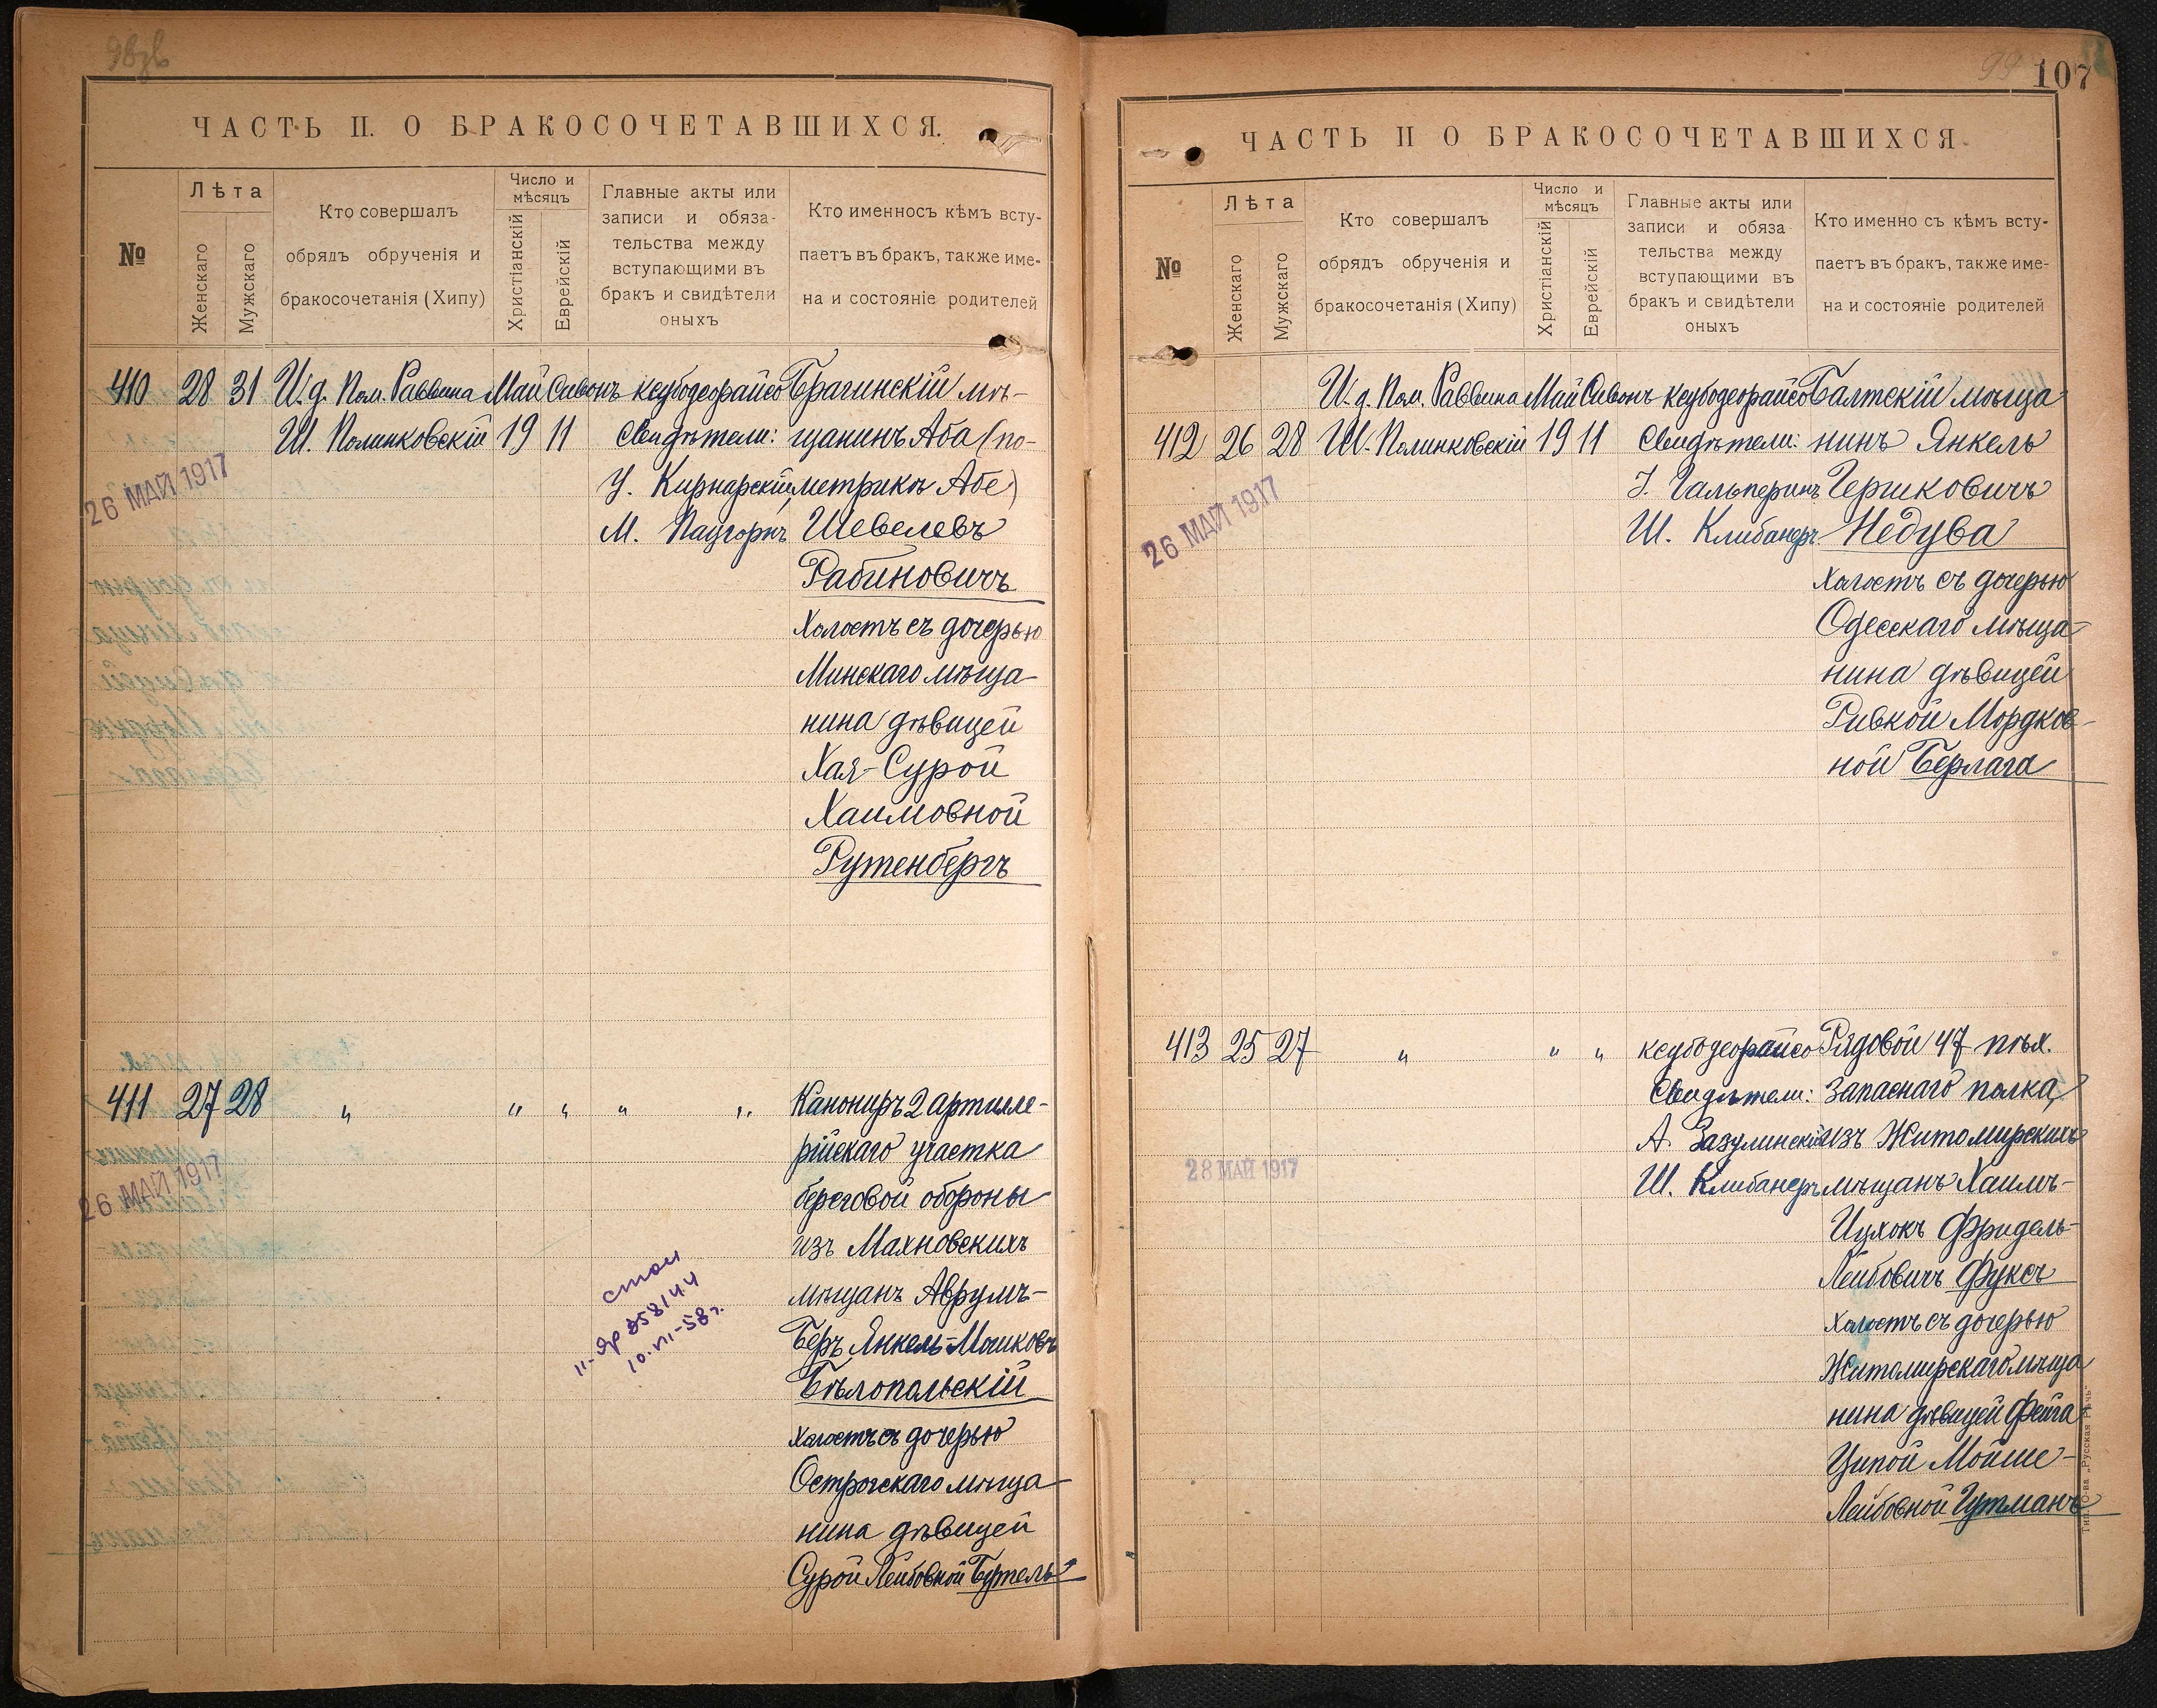 ЧАСТЬ II. О БРАКОСОЧЕТАВШИХСЯ.
№
Лѣта
Женскаго
Мужскаго
Кто совершалъ
обрядъ обрученія и
бракосочетанія (Хипу)
Число и
мѣсяцъ
Христіанскій
Еврейскій
Главные акты или
записи и обяза-
тельства между
вступающими въ
бракъ и свидѣтели
оныхъ
Кто именносъ кѣмъ всту-
паетъ въ бракъ, также име-
на и состояніе родителей
410 28 31 И. д. Пом. Раввина Май Сивонъ ксубодеорайсо Брагинскій мѣ-
Ш. Полинковскій 19 11 Свидѣтели: щанинъ Аба (по
26 МАЙ 1917
У. Кирнарскій, метрикѣ Абе)
М. Пацгоркъ Шевелевъ
Рабиновичъ
Холостъ съ дочерью
Минскаго мѣща-
нина дѣвицей
Хая-Сурой
Хаимовной
Рутенбергъ
411 27 28 " " " " " Канониръ 2 артилле-
рійскаго участка
26 МАЙ 1917
береговой обороны
изъ Махновскихъ
мѣщанъ Аврумъ-
Беръ Янкель-Мошковъ
Бѣлопольскій
холостъ съ дочерью
Острогскаго мѣща-
нина дѣвицей
Сурой Лейбовной Бутель
10.VII-58 г.
107
99
ЧАСТЬ II О БРАКОСОЧЕТАВШИХСЯ
№
Лѣта
Женскаго
Мужскаго
Кто совершалъ
обрядъ обрученія и
бракосочетанія (Хипу)
Число и
мѣсяцъ
Христіанскій
Еврейскій
Главные акты или
записи и обяза
тельства между
вступающими въ
бракъ и свидѣтели
оныхъ
Кто именно съ кѣмъ всту-
паетъ въ бракъ, также име-
на и состояніе родителей
И. д. Пом. Раввина Май Сивонъ ксубодеорайсо Балтскій мѣща
412 26 28 Ш. Полинковскій 19 11 Свидѣтели: нинъ Янкель
26 МАЙ 1917
І. Гальперинъ Гершковичъ
Ш. Клибанеръ Недува
Холостъ съ дочерью
Одесскаго мѣща-
нина дѣвицей
Ривкой Мордков-
ной Берлага
413 25 27 " " " ксубодеорайсо Рядовой 47 пѣх.
Свидѣтели: запаснаго полка,
А. Зазулинскій изъ Житомирскихъ
28 МАЙ 1917
Ш. Клибанеръ мѣщанъ Хаимъ-
Ицхокъ Фридель-
Лейбовичъ Фуксъ
холостъ съ дочерью
Житомирскаго мѣща
нина дѣвицей Фейга
Ципой Мойше-
Лейбовной Гутманъ